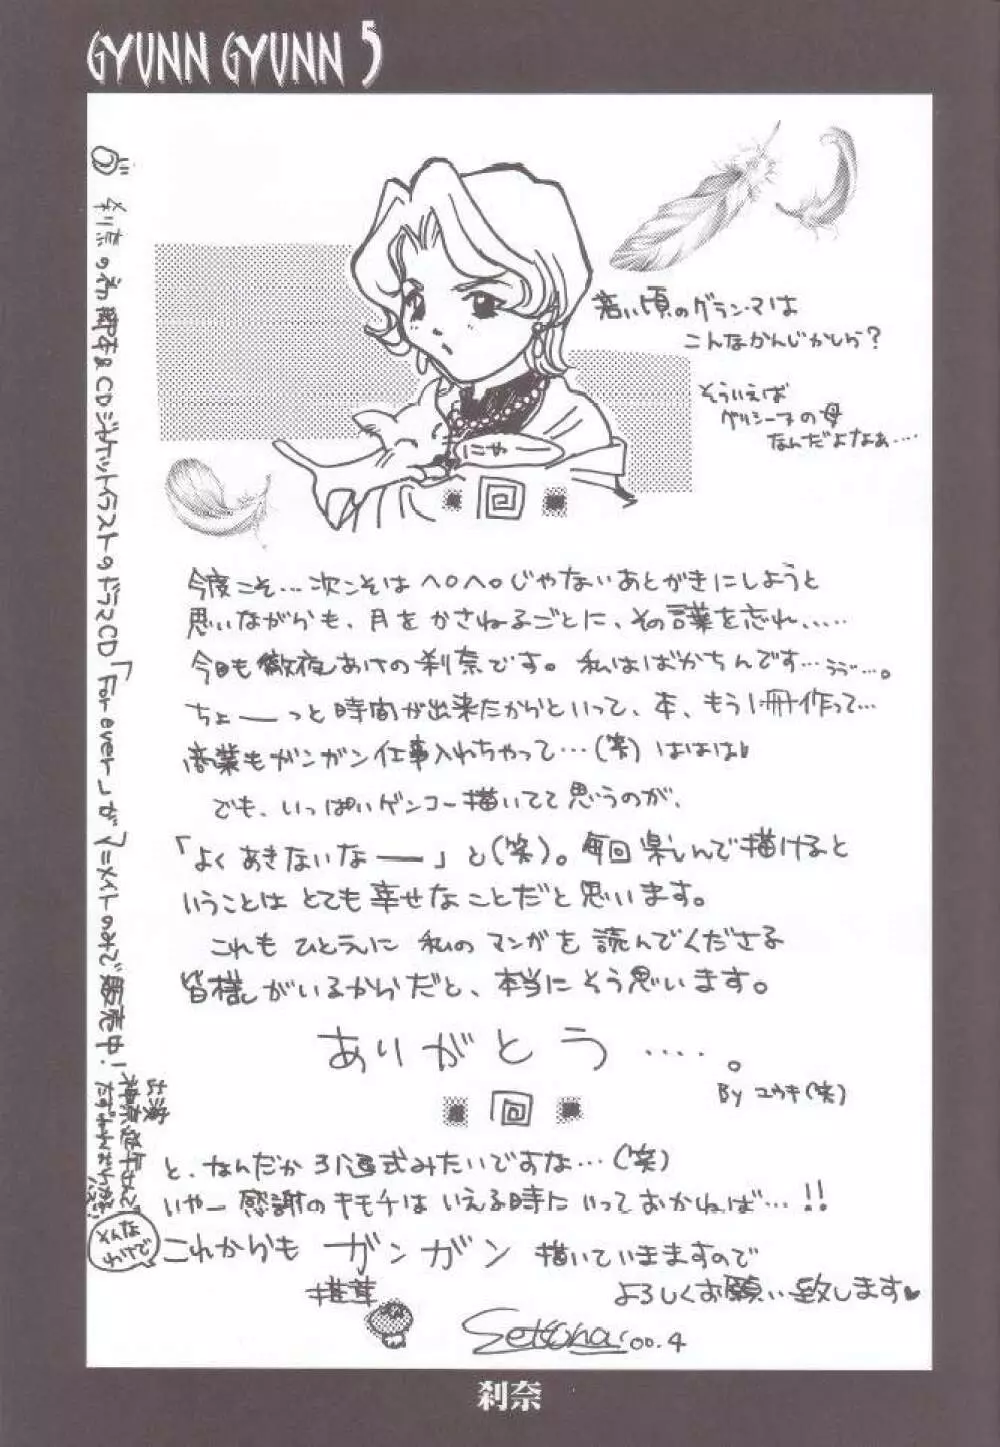 GYUNN GYUNN 5
若い頃のグラン・マは
こんなかんじかしら？
そういえば
グリシーヌの母
なんだよなぁ‥‥
にゃー
今度こそ…次こそはヘロヘロじゃないあとがきにしようと
思いながらも、月をかさねるごとに、その言葉を忘れ、‥‥
今日も徹夜あけの刹奈です。私はばかちんです…ううっ…。
ちょーーっと時間が出来たからといって、本、もう1冊作って…
商業もガンガン仕事入れちゃって…(笑) ははは
でも、いっぱいゲンコー描いてて思うのが、
「よくあきないなー」と(笑)。毎回楽しんで描けると
いうことはとても幸せなことだと思います。
これもひとえに私のマンガを読んでくださる
皆様がいるからだと、本当にそう思います。
ありがとう‥‥。
By ユウキ(笑)
と、なんだか引退式みたいですな…(笑)
いやー感謝のキモチはいえる時にいっておかねば…!!
これからもガンガン描いていきますので
よろしくお願い致します♥
椎茸
Setsuna '00.4
刹奈の初脚本&CDジャケットイラストのドラマCD「For ever」がアニメイトのみで販売中!
出演
刹奈